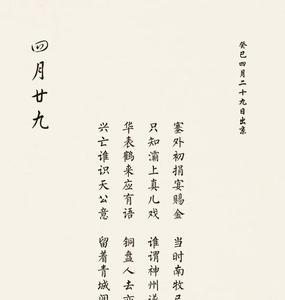 癸巳四月二十九日出京
塞外初捐宴赐金 当时南牧已
只知灞上真儿戏 谁谓神州
华表鹤来应有语 铜盘人去亦
兴亡谁识天公意 留着青城阅
四月廿九